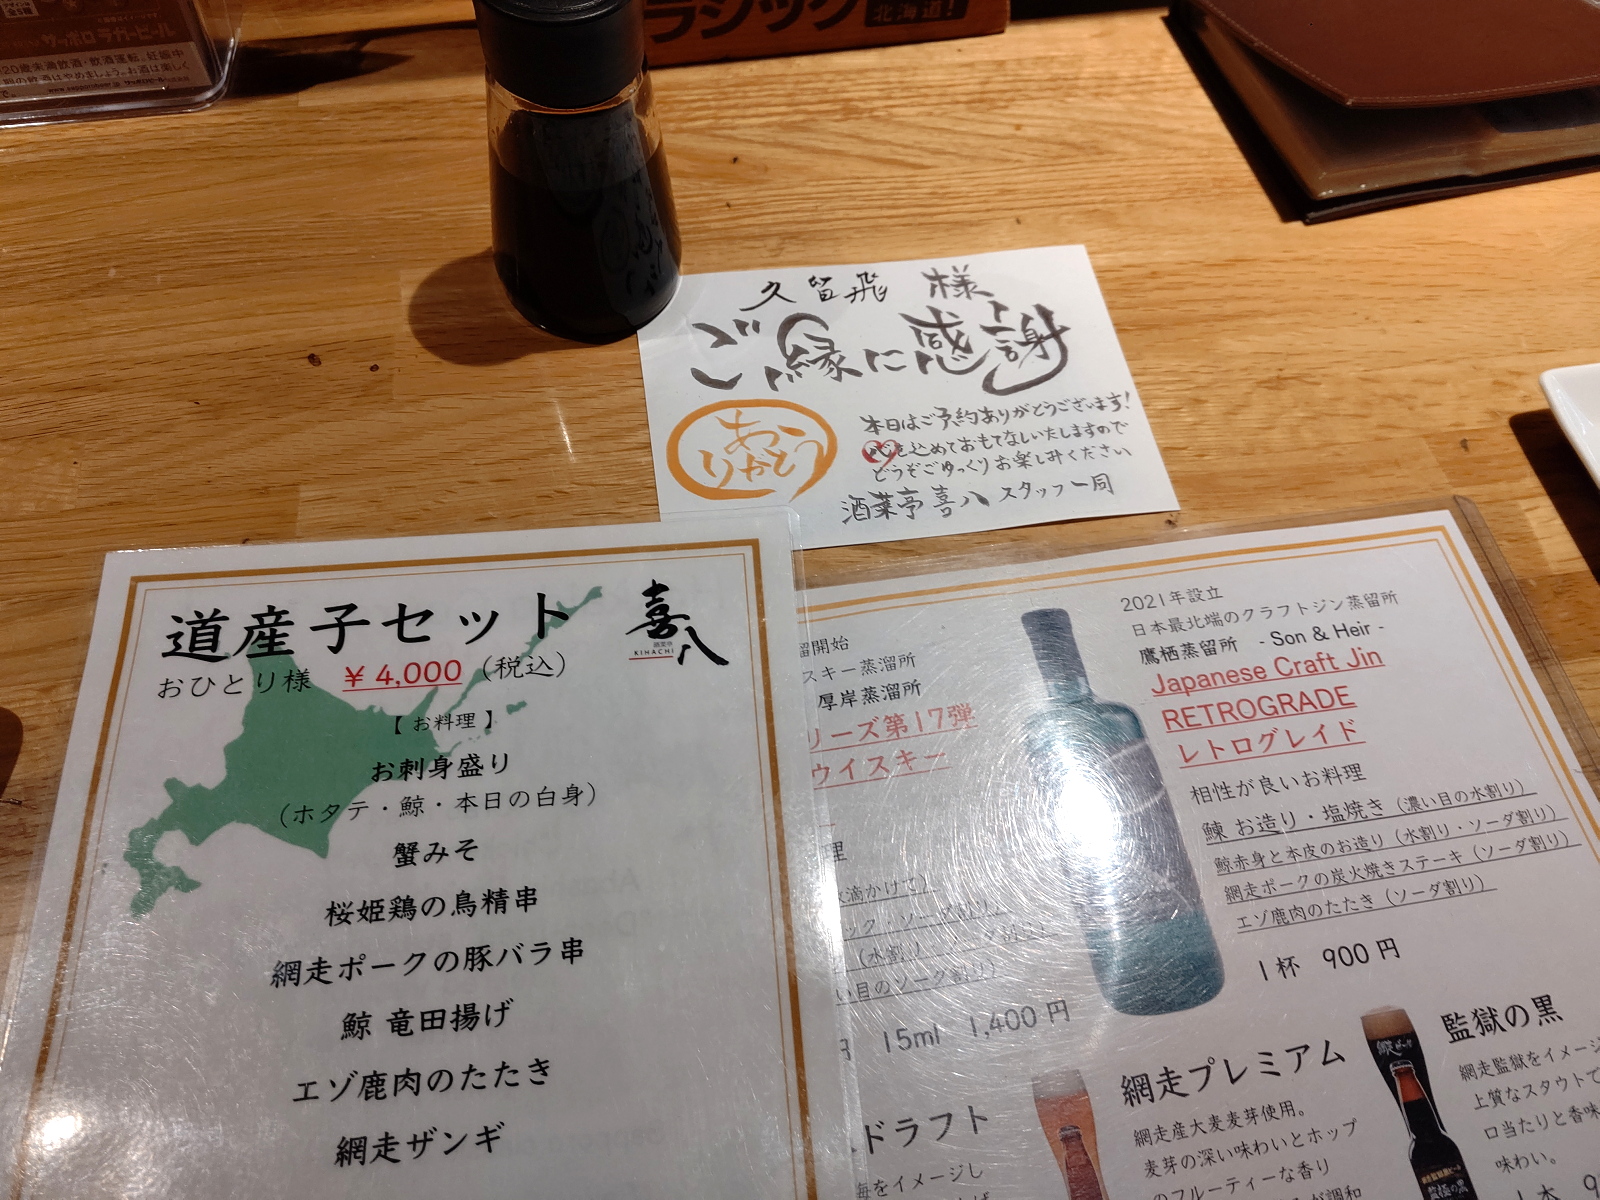 サッポロラガービール
20歳未満飲酒・飲酒運転、妊娠中
ラシック
北海道!
久留飛 様
ご縁に感謝
ありがとう
本日はご予約ありがとうございます!
心を込めておもてなしいたしますので
どうぞごゆっくりお楽しみください
酒菜亭 喜八 スタッフ一同
道産子セット
喜八
KIHACHI
おひとり様 ¥4,000(税込)
【お料理】
お刺身盛り
(ホタテ・鯨・本日の白身)
蟹みそ
桜姫鶏の鳥精串
網走ポークの豚バラ串
鯨 竜田揚げ
エゾ鹿肉のたたき
網走ザンギ
留開始
スキー蒸溜所
厚岸蒸溜所
リーズ第17弾
ウイスキー
理
滴かけて)
ック・ソーダ割り)
(水割り・ソーダ割り)
い目のソーダ割り)
円 15ml 1,400円
2021年設立
日本最北端のクラフトジン蒸留所
鷹栖蒸留所 - Son & Heir -
Japanese Craft Jin
RETROGRADE
レトログレイド
相性が良いお料理
鰊 お造り・塩焼き(濃い目の水割り)
鯨赤身と本皮のお造り(水割り・ソーダ割り)
網走ポークの炭火焼きステーキ(ソーダ割り)
エゾ鹿肉のたたき(ソーダ割り)
1杯 900円
ドラフト
海をイメージし
網走プレミアム
網走産大麦麦芽使用。
麦芽の深い味わいとホップ
のフルーティーな香り
が調和
監獄の黒
網走監獄をイメージ
上質なスタウトで
口当たりと香味
味わい。